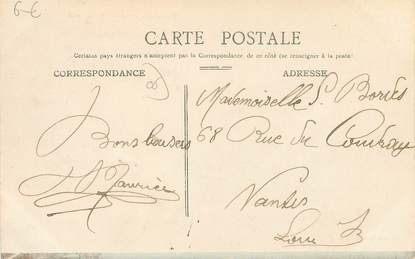 6-€
CARTE POSTALE
Certains pays étrangers n'acceptent pas la Correspondance de ce côté (se renseigner à la poste)
CORRESPONDANCE
ADRESSE
Bons baisers
Maurice
Mademoiselle S. Boriés
68 Rue du Coudray
Nantes
Loire